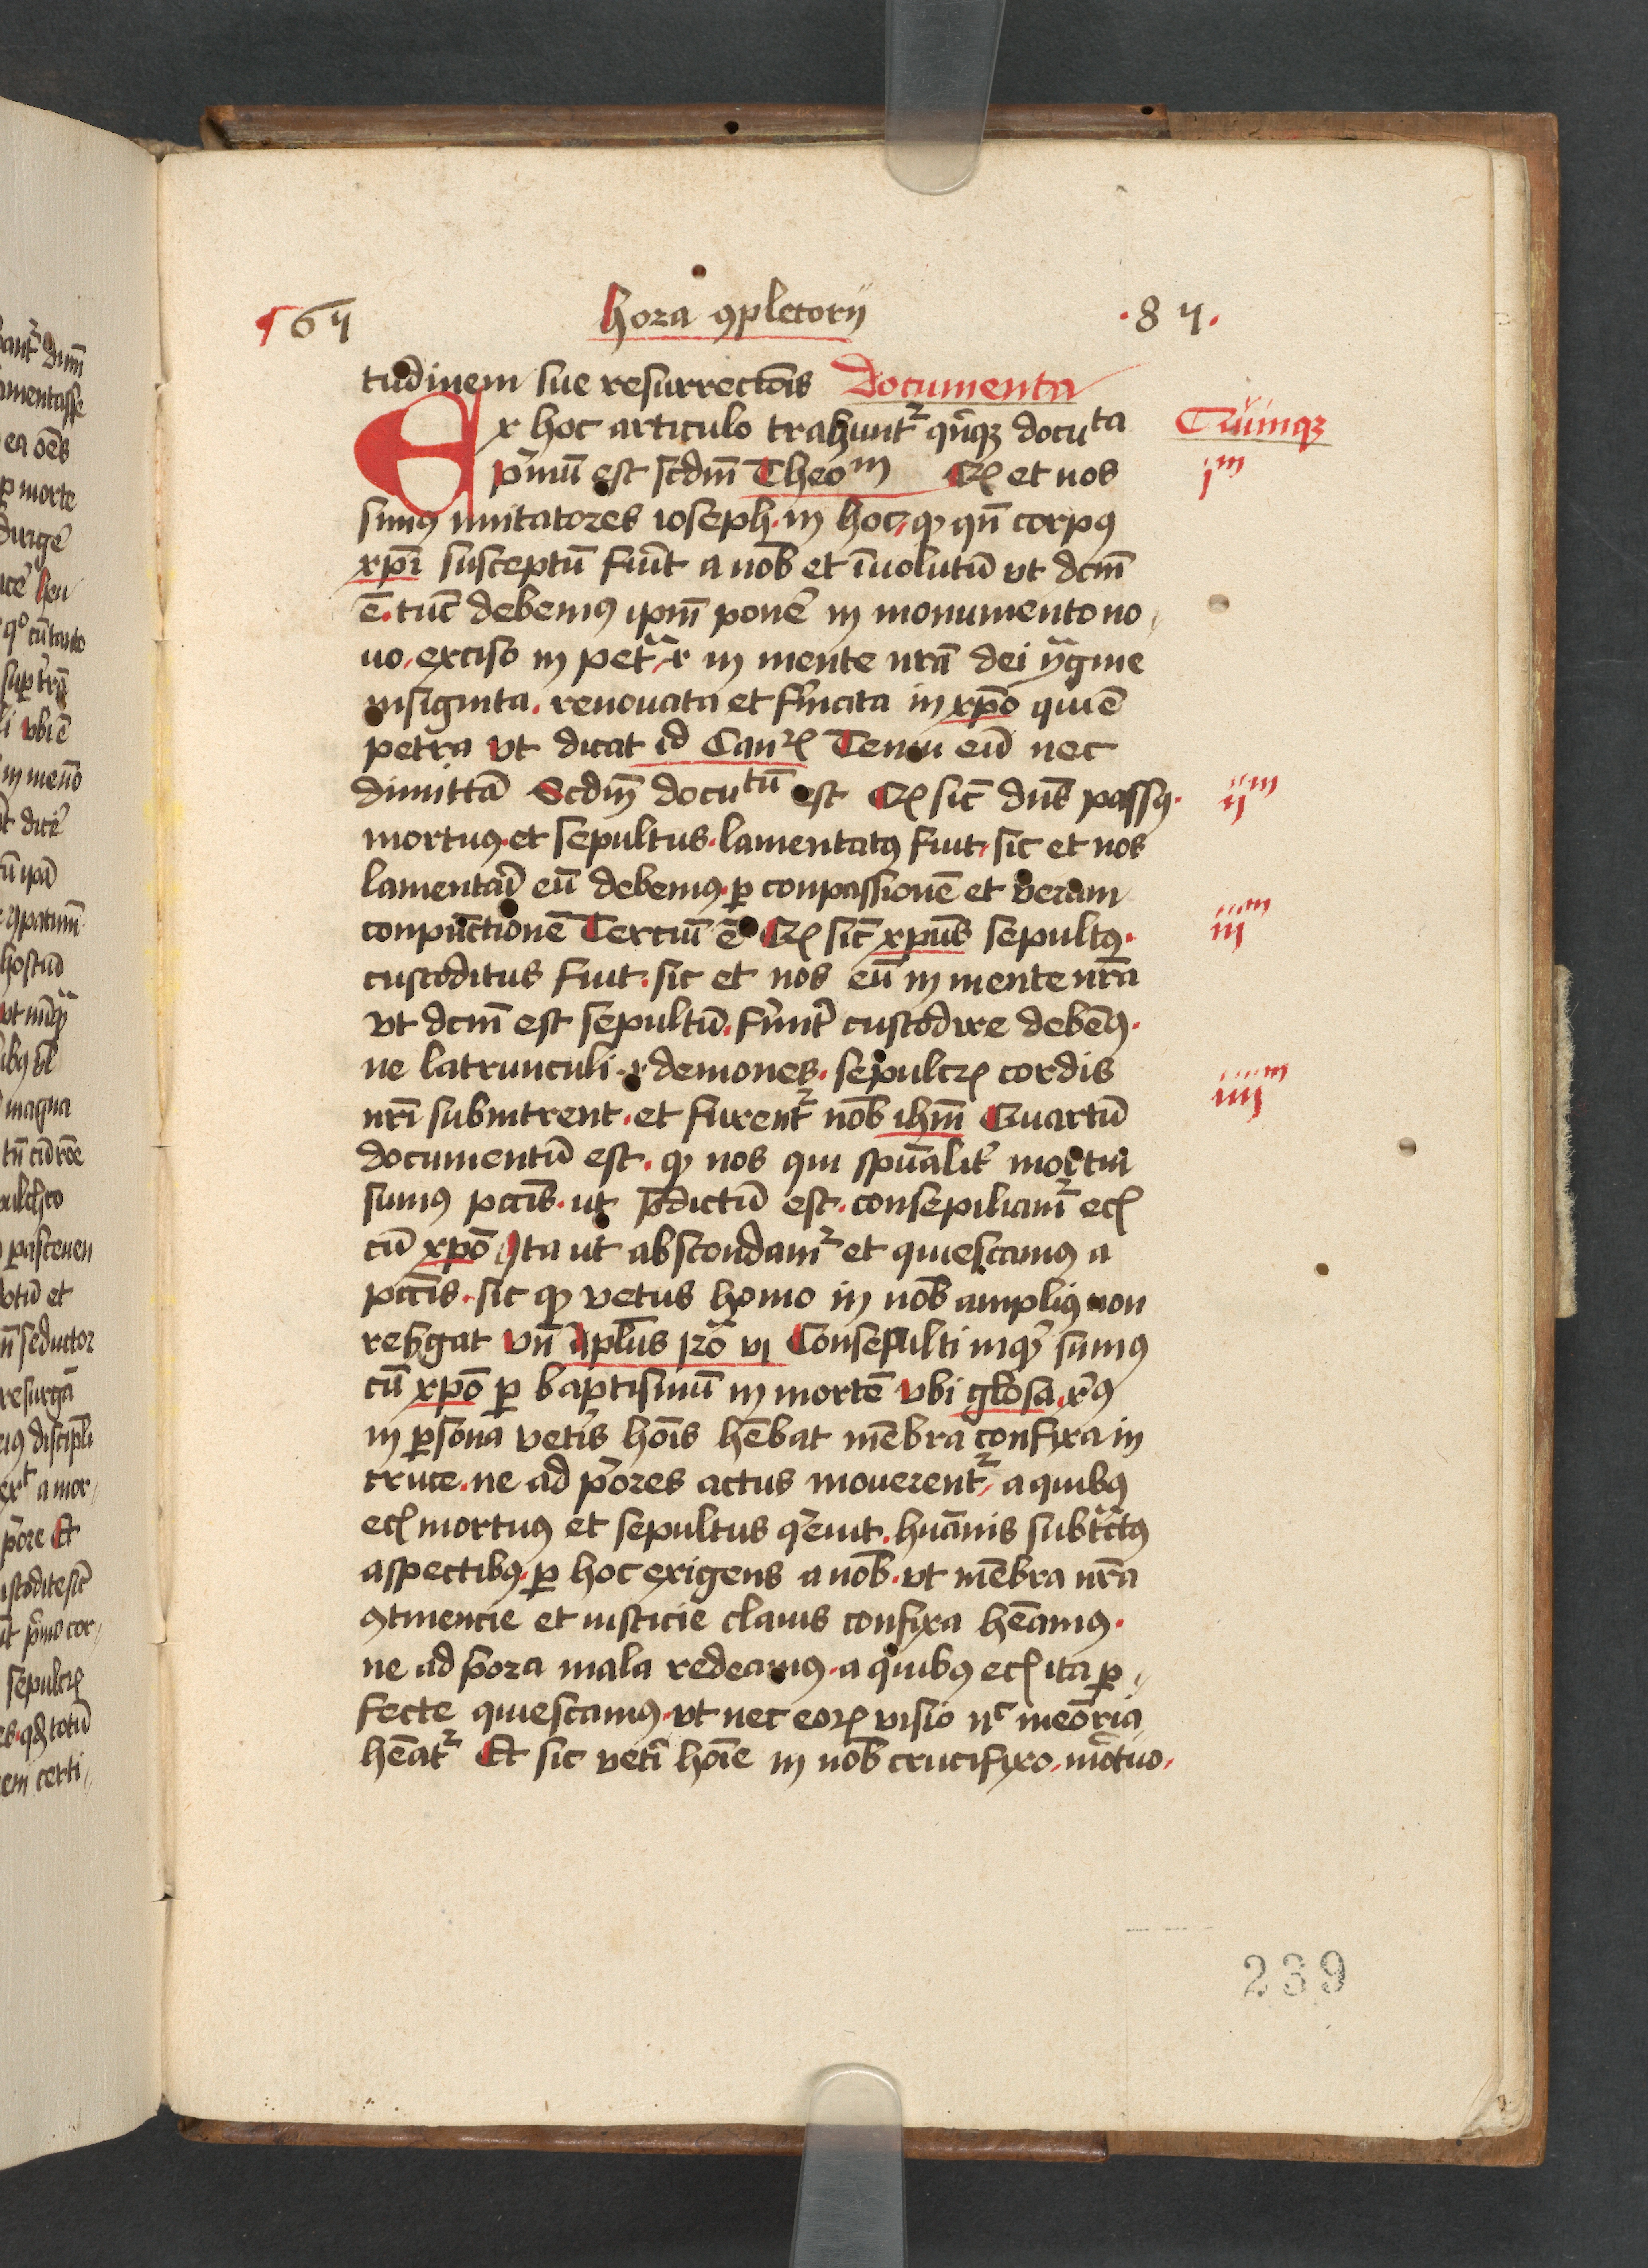 ¶ 64 hora ꝯpletorij .84.
tudinem sue resurrectõis Documenta
Ex hoc articulo trahuntᷣ qñqꝫ docuta
Quinqꝫ
pͥmũ est scdm̃ Theom Qꝫ et nos
jm
sumꝰ imitatores ioseph. in hoc, ꝙ qñ corpꝰ
xpĩ susceptũ fũit a nob̃ et ĩuolutũ vt dcm̃
ẽ. tũc debemꝰ ipm̃ ponẽ in monumento no,
uo, exciso in petᵃ, r̵ in mente nrã dei ymᵃgine
insignita. renouata et fᷓmata in xp̃o qui ẽ
petra vt dicat id Canꝝ Tenui eũ nec
dimittã Scdm̃ docutũ est Qꝫ sic̃ dñs passꝰ.
ijm
mortuꝰ. et sepultus. lamentatꝰ fuit, sic et nos
lamentar̃ eũ debemꝰ. ꝑ conpassionẽ et veram
conpũctionẽ Terciũ ẽ Qꝫ sic̃ xpũs sepultꝰ.
iijm
custoditus fuit. sic et nos eũ in mente nrã
vt dcm̃ est sepultũ. fͥmit̃ custodire debẽꝰ.
ne latrunculi. r̵ demones. sepulcꝝ cordis
nrĩ subintrent. et furentᷣ nob̃ ihm̃ Quartũ
iiijm
documentũ est. ꝙ nos qui spũalit̃ mortui
sumus pcc̃is. ut p̃dictũ est. consepiliamᷣ ecꝫ
cũ xp̃o Ita ut abscondamᷣ et quiescamꝰ a
pcc̃is. sic ꝙ vetus homo in nob̃ ampliꝰ non
resᷣgat Vñ Apl̃us Ro͂ vi Consepulti inqͥ sumꝰ
cũ xp̃o ꝑ baptismũ in mortẽ vbi glosa. xᷓꝰ
in ꝑsona vet̃is hoĩs hẽbat mẽbra confixa in
cruce. ne ad pͥores actus mouerentᷣ, a quibꝰ
ecꝫ mortuꝰ et sepultus qͥeuit. humᵃnis subtᵃctꝰ
aspectibꝰ. ꝑ hoc exigens a nob̃. vt mẽbra nrã
ꝯtinencie et iusticie clauis confixa hẽamꝰ.
ne ad pͥora mala redeamꝰ. a quibꝰ ecꝫ ita ꝑ,
fecte quiescamꝰ. vt nec eoꝝ visio nᶜ meõria
hẽatᷣ Et sic vetĩ hoĩe in nob̃ crucifixo. mõtuo.
239